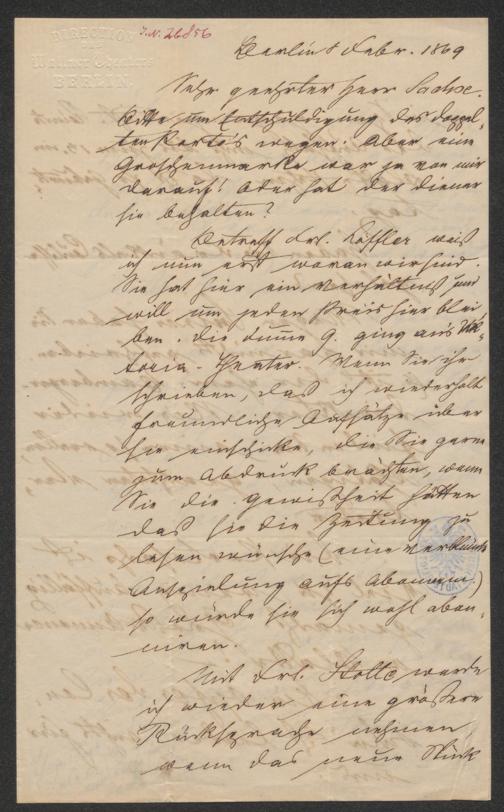 J.N. 26856
DIRECTION
Wallner Theaters
BERLIN.
Berlin 8 Febr. 1869
Sehr geehrter Herr Sachse.
Bitte um Entschuldigung des doppel-
ten Porto's wegen. Aber eine
Groschenmarke war ja von mir
darauf! Oder hat der Diener
sie behalten?
Betreff Frl. Löffler weiß
ich nun erst woran wir sind.
Sie hat hier ein Verhältniß und
will um jeden Preis hier blei-
ben. Die dumme G. ging an's Vik-
toria-Theater. Wenn Sie ihr
schrieben, daß ich wiederholt
freundliche Aufsätze über
sie einschicke, die Sie gerne
zum Abdruck brächten, wenn
Sie die Gewißheit hätten
daß sie die Zeitung zu
lesen wünsche (eine verblümte
Anspielung aufs Abonnem.)
so würde sie sich wohl abon-
niren.
Mit Frl. Stolle werde
ich wieder eine größere
Rücksprache nehmen,
wenn das neue Stück